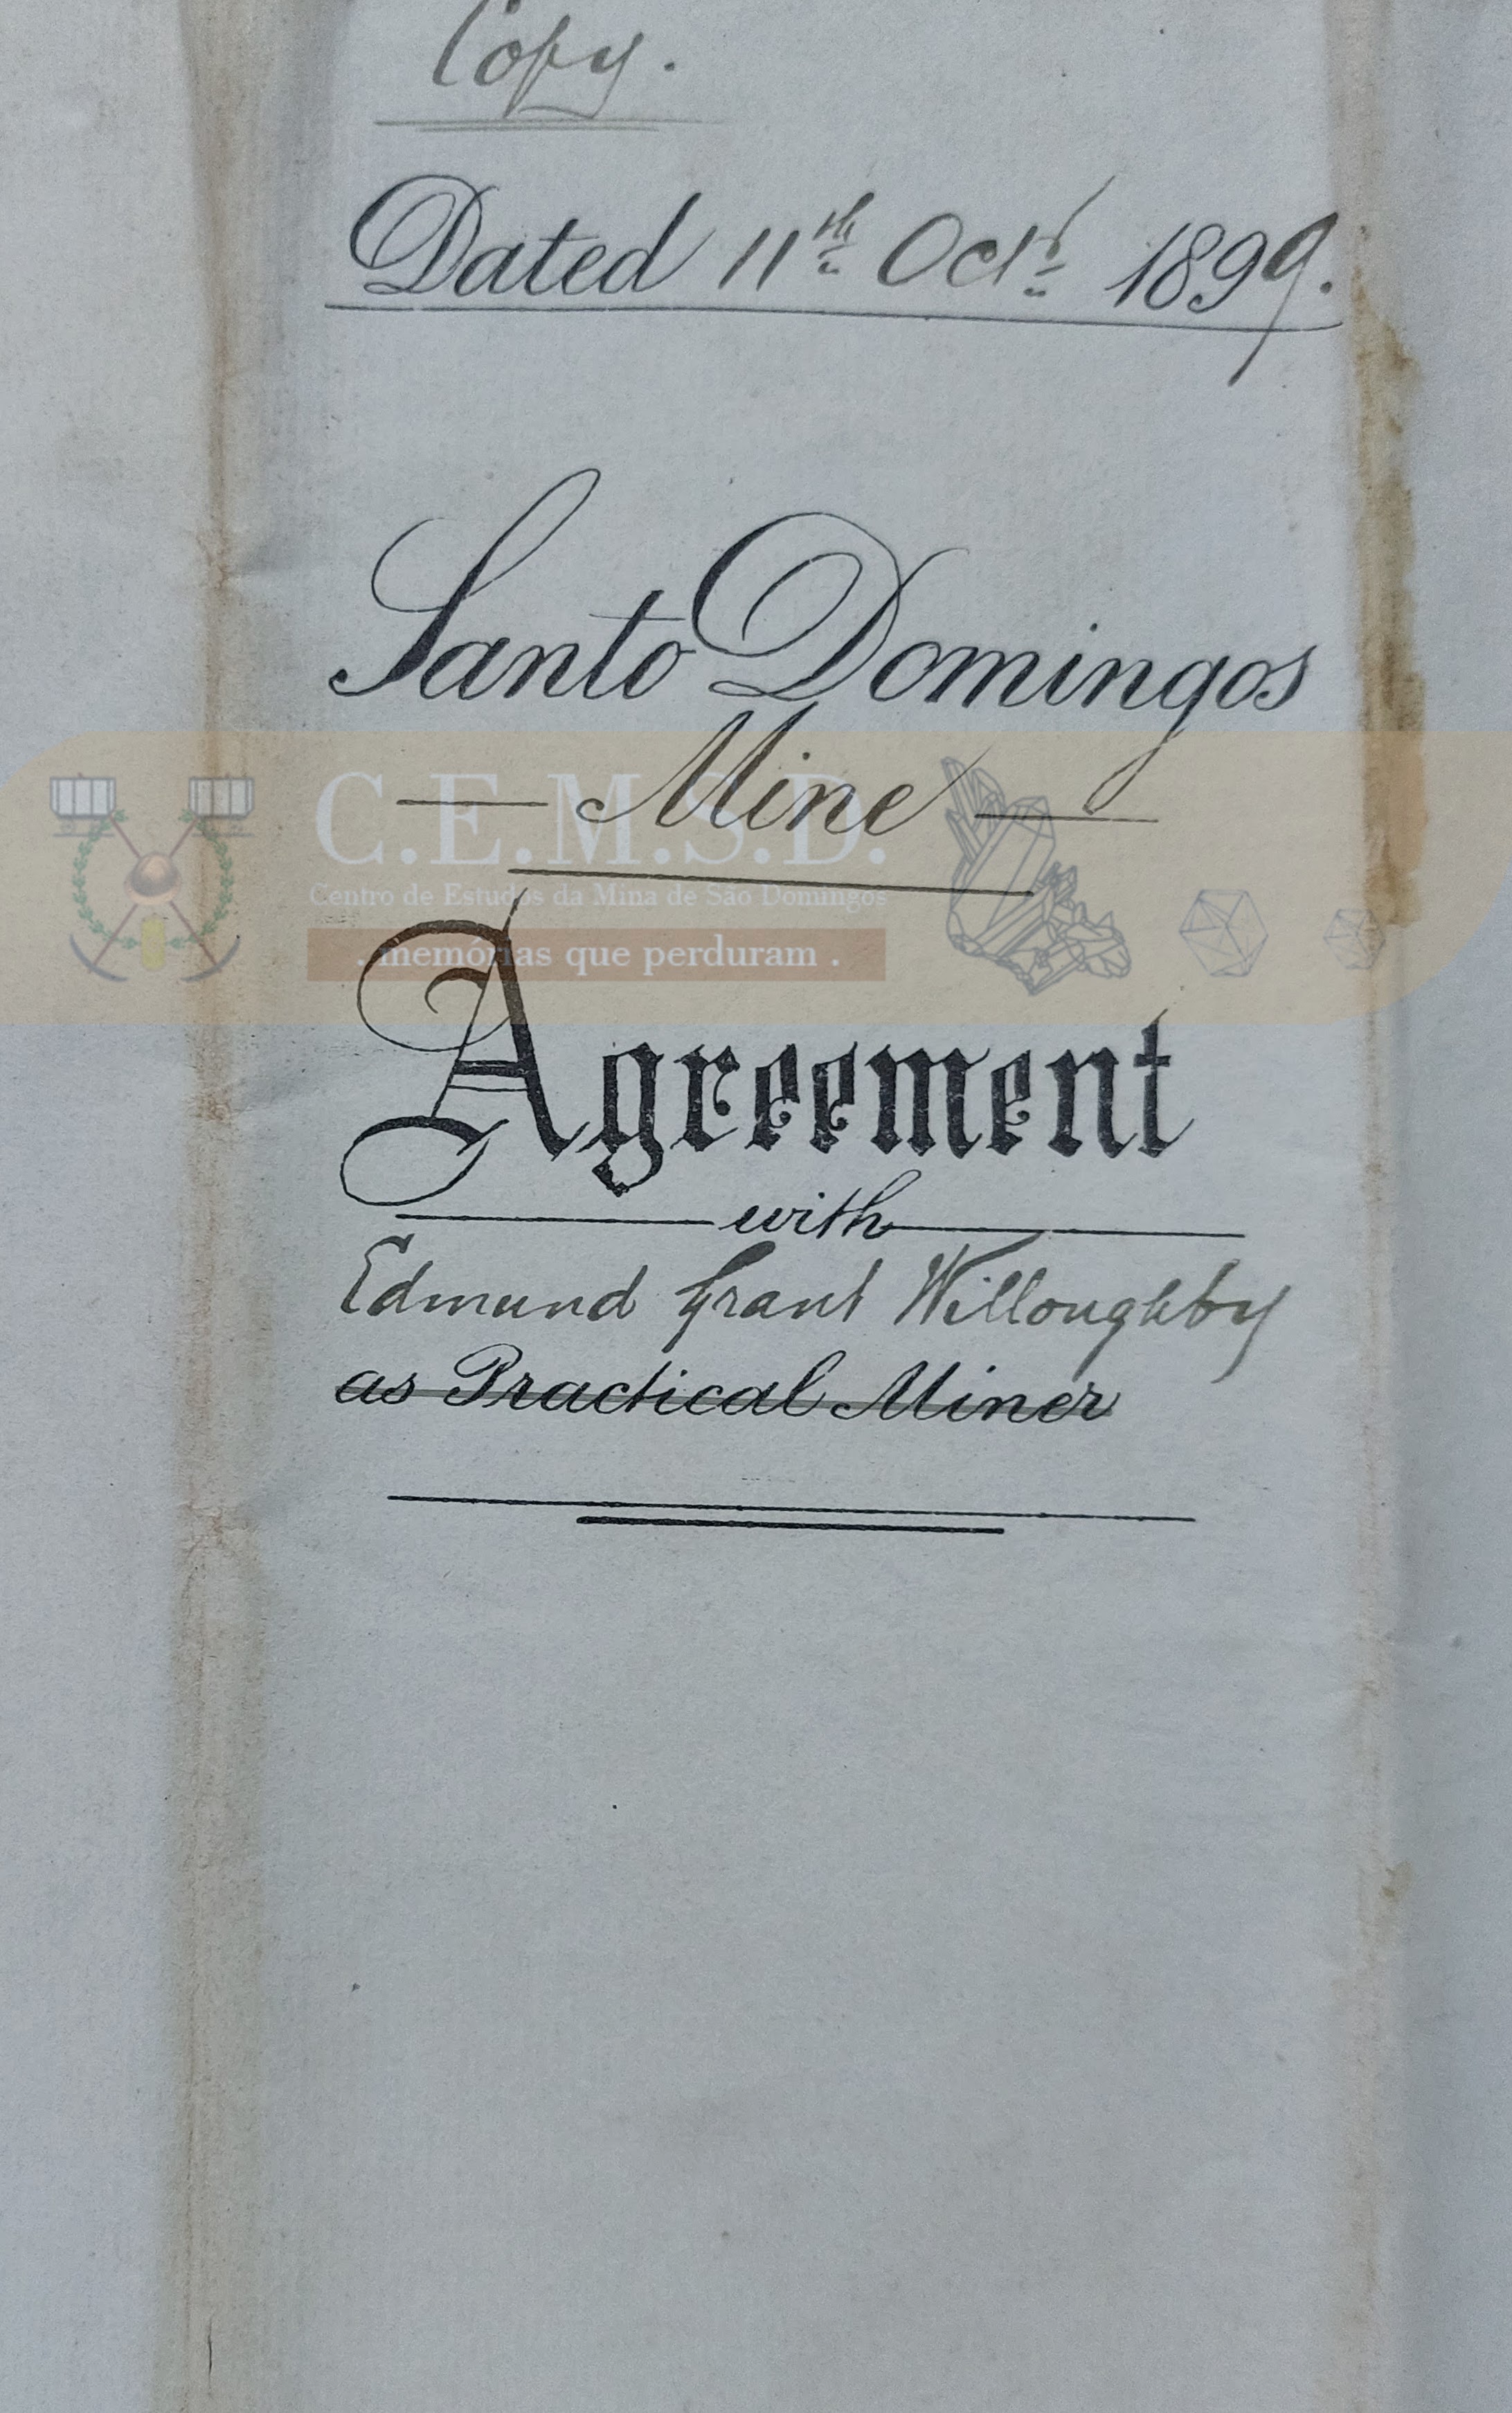 Copy.
Dated 11th Octr 1899.
Santo Domingos
Mine
C.E.M.S.D.
Centro de Estudos da Mina de São Domingos
. memórias que perduram .
Agreement
with
Edmund Grant Willoughby
as Practical Miner